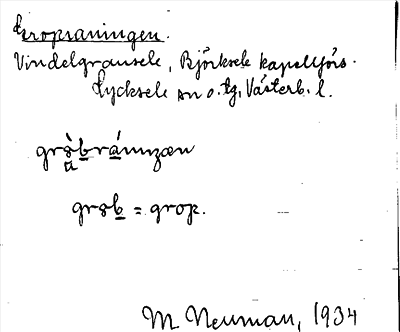 Gropraningen.
Vindelgransele, Björksele kapellförs.
Lycksele sn o. tg, Västerb. l.
grȯ̀b̲rá̲nnꞬæn
a
grob̲ = grop.
M Neuman, 1934